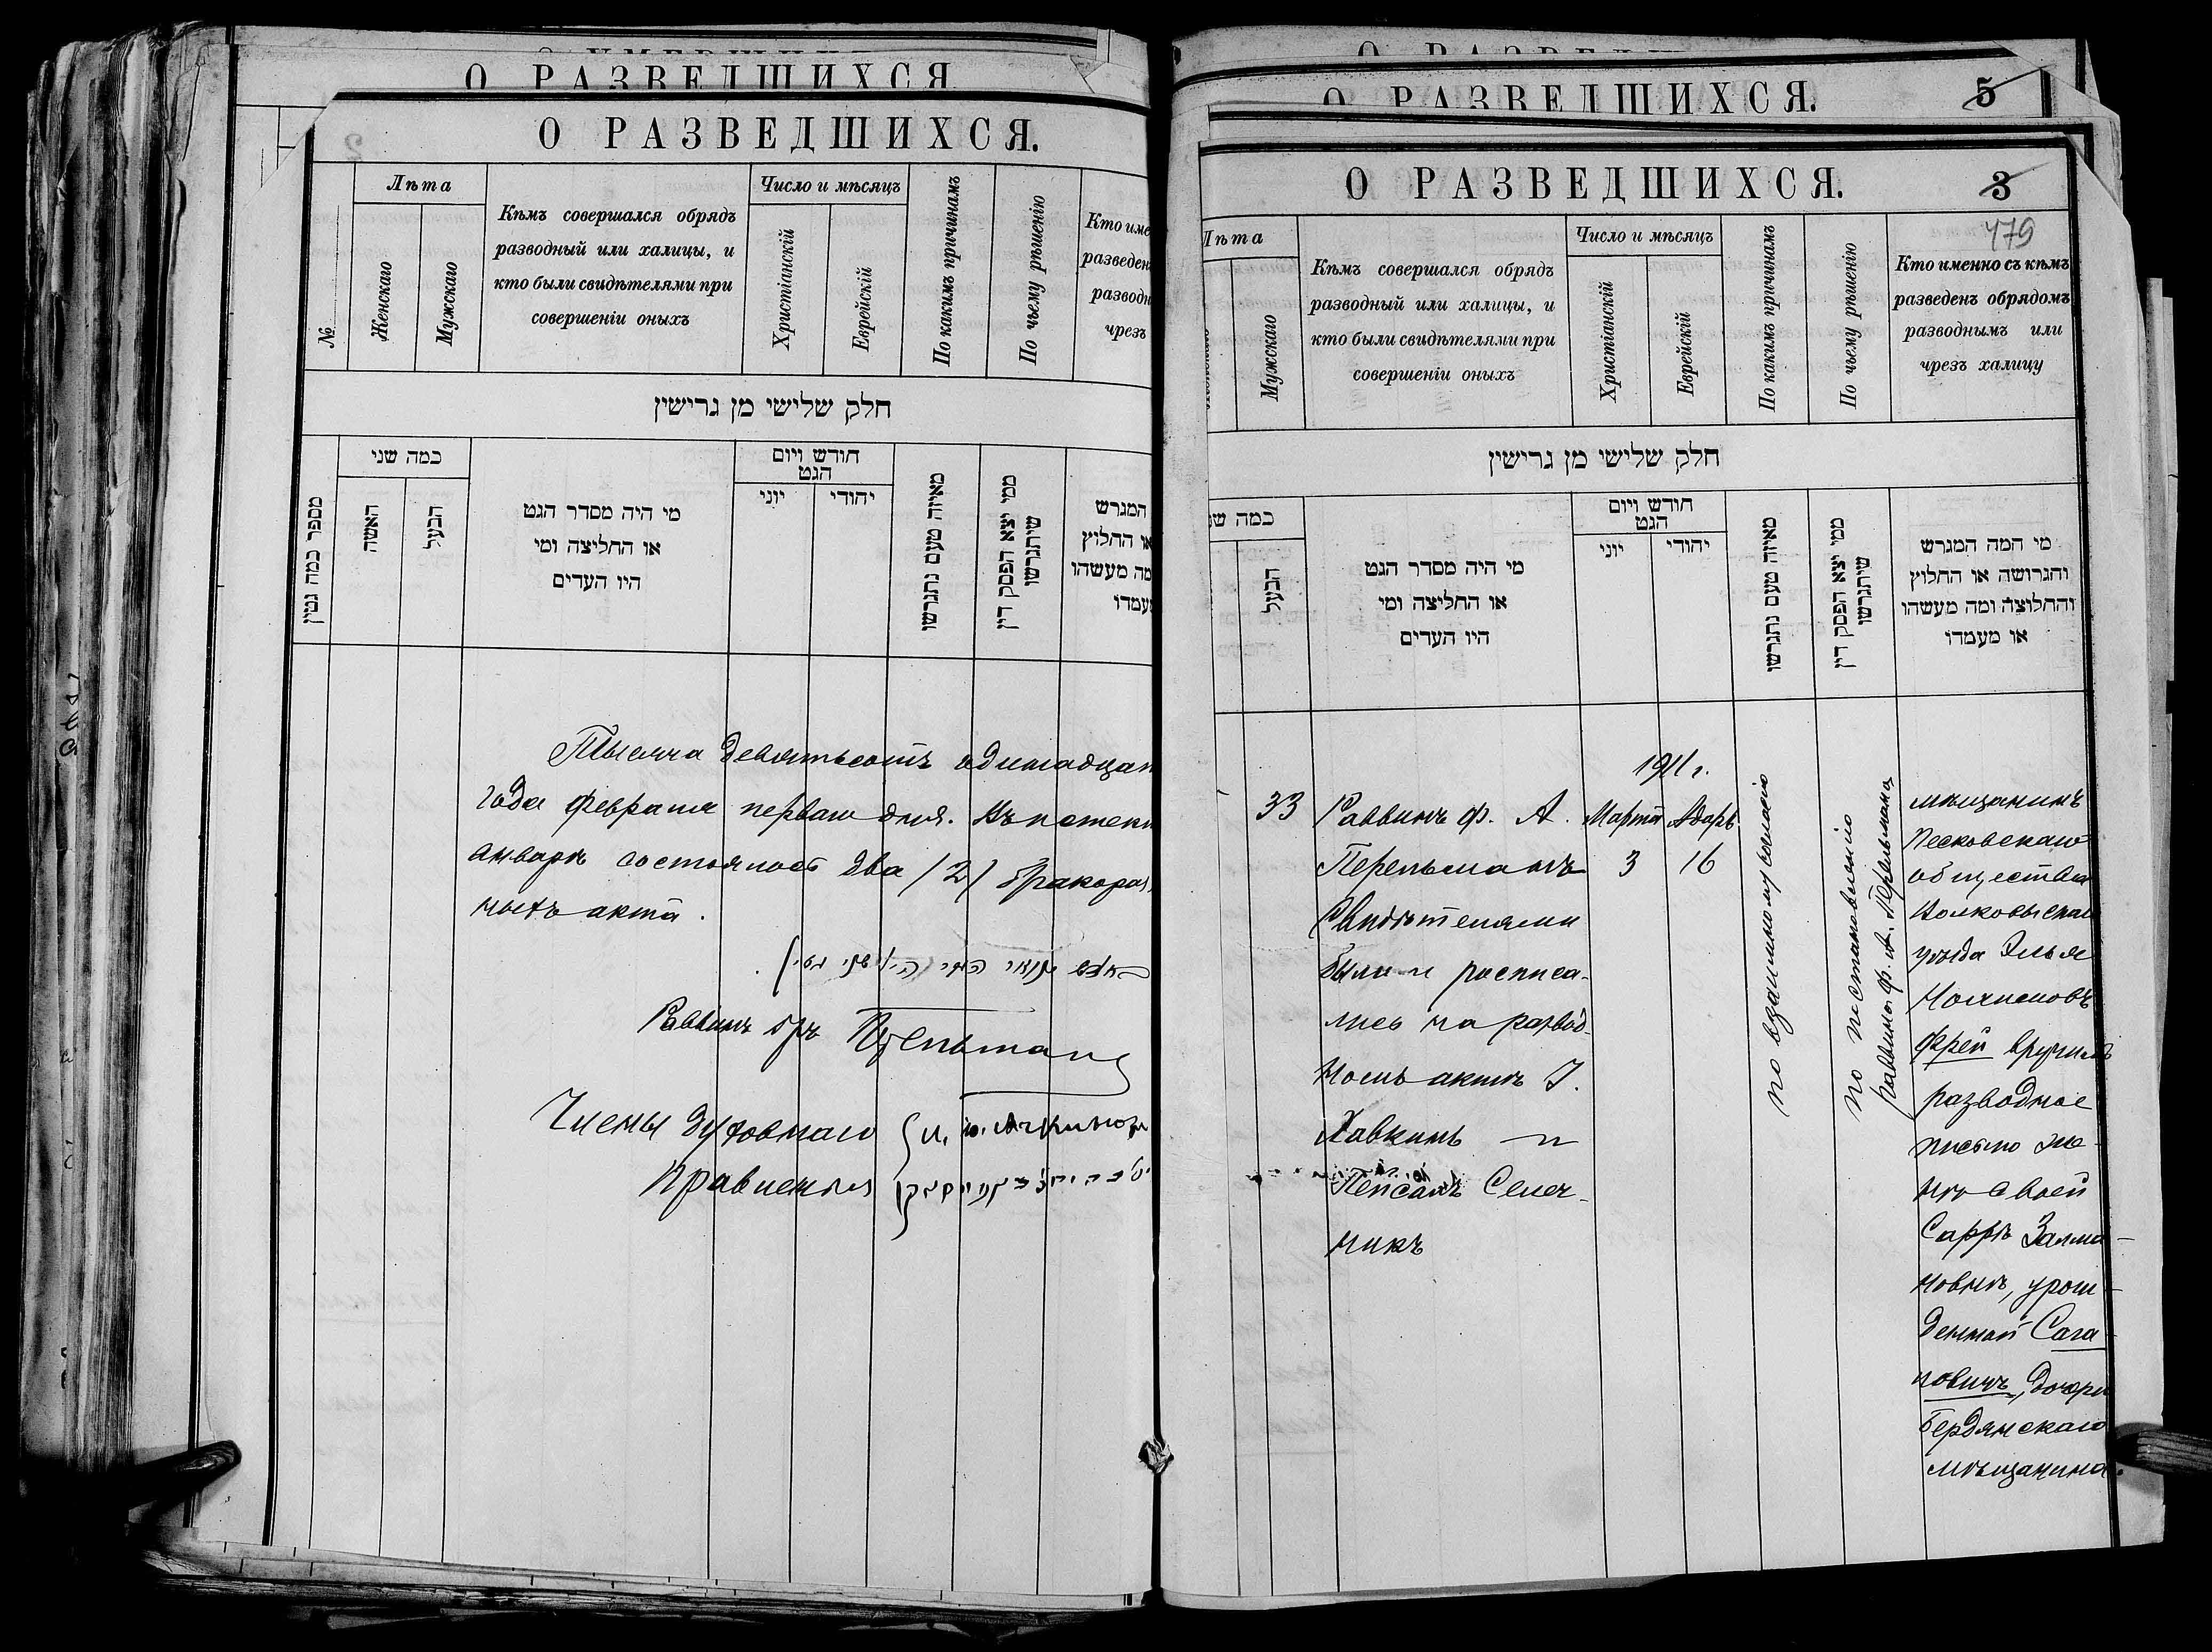 О РАЗВЕДШИХСЯ
О РАЗВЕДШИХСЯ.
№
Лѣта
Женскаго
Мужскаго
Кѣмъ совершался обрядъ
разводный или халицы, и
кто были свидѣтелями при
совершеніи оныхъ
Число и мѣсяцъ
Христіанскій
Еврейскій
По какимъ причинамъ
По чьему рѣшенію
Кто име
разведен
разводн
чрезъ
חלק שלישי מן גרישין
מספר כמה גטין
כמה שני
האשה
הבעל
מי היה מסדר הגט
או החליצה ומי
היו העדים
חודש ויום
הגט
יוני
יהודי
מאיזה טעם נתגרשו
ממי יצא הפסק דין
שיתגרשו
המגרש
או החלוץ
מה מעשהו
מעמדו
Тысяча девятьсотъ одинадцат
года февраля перваго дня. Въ истекш
январѣ состоялось два /2/ бракораз
ныхъ акта.
Раввинъ Перельманъ
Члены духовнаго
Правленія
О РАЗВЕДШИХСЯ.
5
О РАЗВЕДШИХСЯ.
3
479
Лѣта
Мужскаго
Кѣмъ совершался обрядъ
разводный или халицы, и
кто были свидѣтелями при
совершеніи оныхъ
Число и мѣсяцъ
Христіанскій
Еврейскій
По какимъ причинамъ
По чьему рѣшенію
Кто именно съ кѣмъ
разведенъ обрядомъ
разводнымъ или
чрезъ халицу
חלק שלישי מן גרישין
כמה שנ
הבעל
מי היה מסדר הגט
או החליצה ומי
היו העדים
חודש ויום
הגט
יוני
יהודי
מאיזה טעם נתגרשו
ממי יצא הפסק דין
שיתגרשו
מי המה המגרש
והגרושה או החלוץ
והחלוצה ומה מעשהו
או מעמדו
33
Раввинъ Ф. А.
Перельманъ
Свидѣтелями
были и росписа-
лись на развод-
номъ актѣ I.
Хавкинъ и
Пейсахъ Селеч-
никъ
1911 г.
Марта Адаръ
3 16
по взаимному согласію
по постановленію
раввина Ф. А. Перельмана
мѣщанинъ
Песковскаго
общества
Волковыскаго
уѣзда Элья
Фрей вручилъ
разводное
письмо же-
нѣ своей
Саррѣ Залма-
новнѣ, урож-
денной Сага-
новичъ, дочери
бердянскаго
мѣщанина.